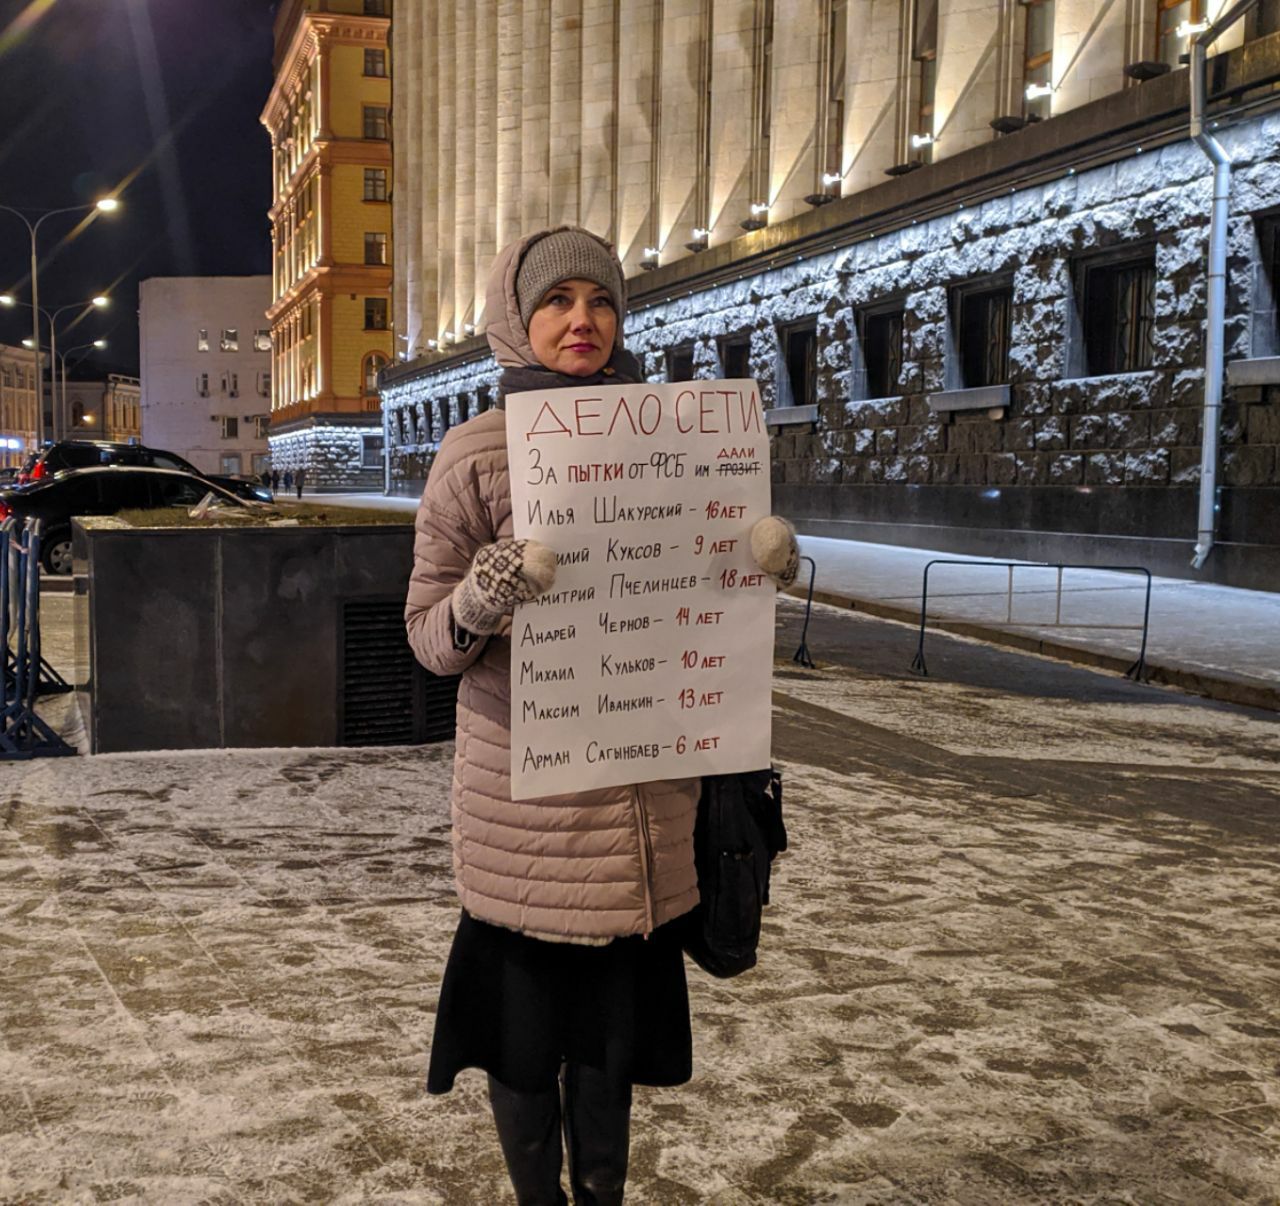 ДЕЛО СЕТИ
За ПЫТКИ ОТ ФСБ ИМ ДАЛИ ГРОЗИТ:
Илья Шакурский - 16 ЛЕТ
Куксов - 9 ЛЕТ
Дмитрий Пчелинцев - 18 ЛЕТ
Андрей Чернов - 14 ЛЕТ
Михаил Кульков - 10 ЛЕТ
Максим Иванкин - 13 ЛЕТ
Арман Сагынбаев - 6 ЛЕТ